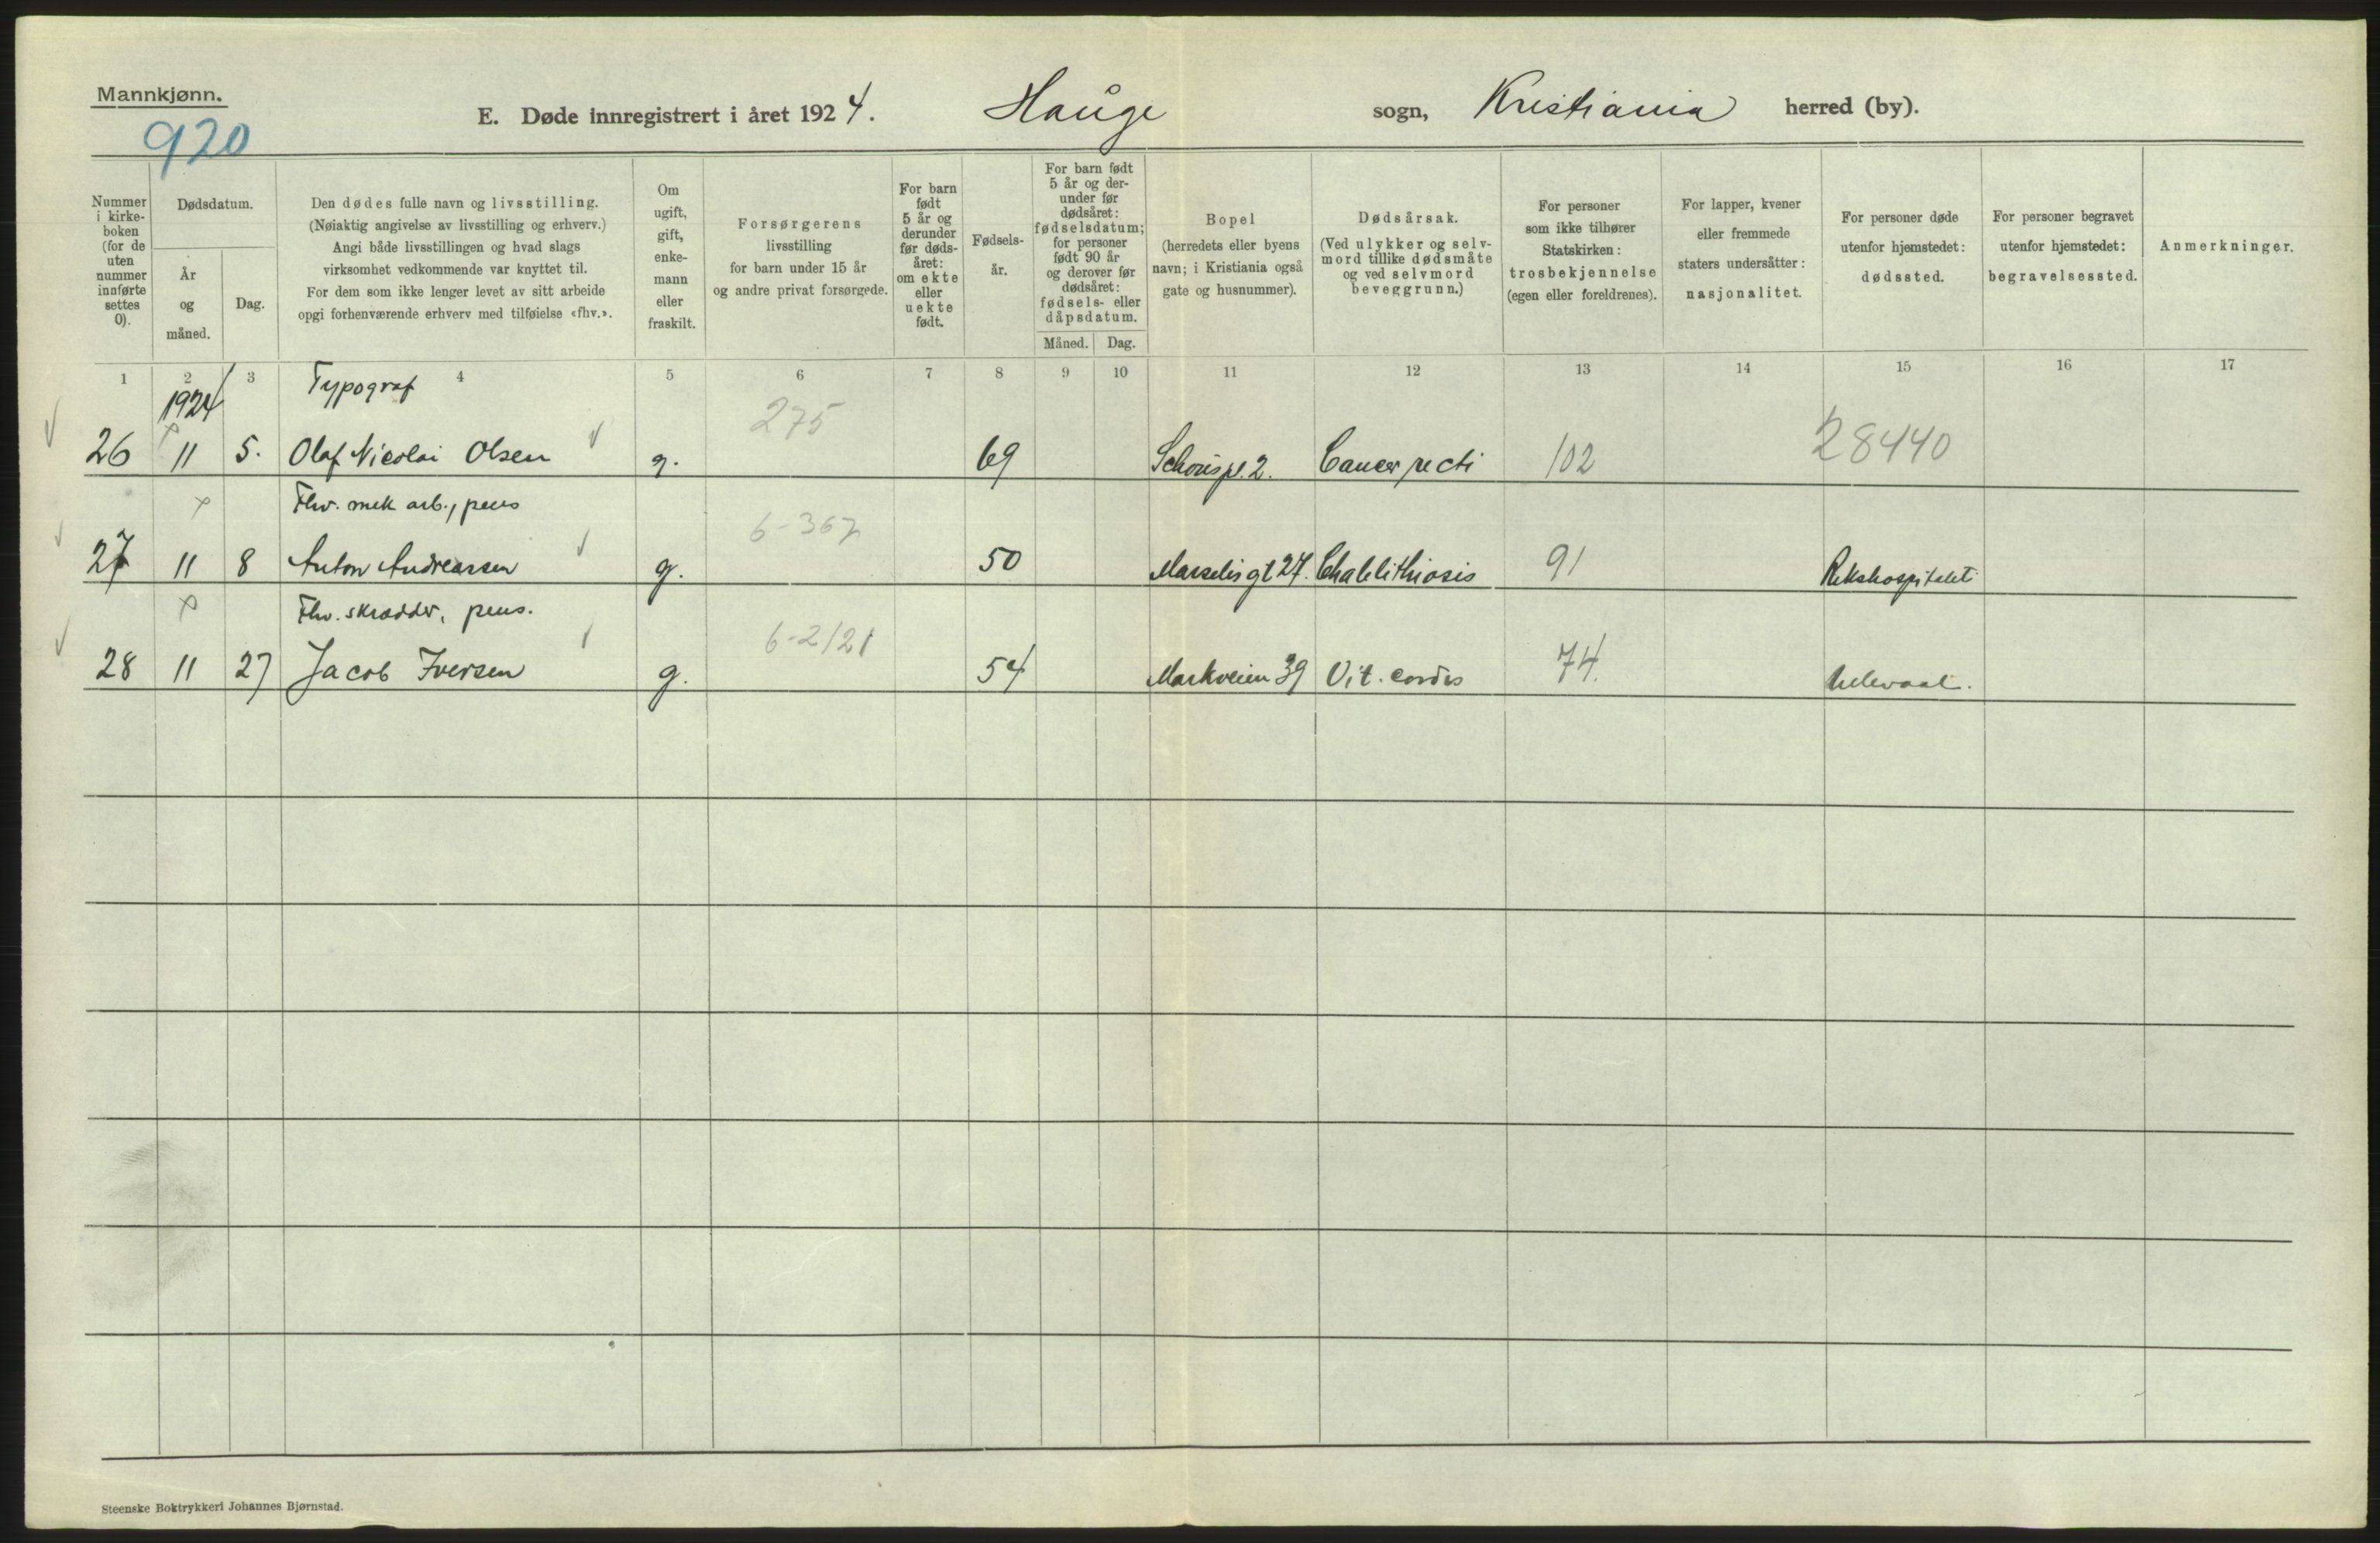 Mannkjønn.
920
E. Døde innregistrert i året 1924. Hauge sogn, Kristiania herred (by).
Nummer i kirke-boken (for de uten nummer innførte settes 0).
Dødsdatum.
År og måned.
Dag.
Den dødes fulle navn og livsstilling.
(Nøiaktig angivelse av livsstilling og erhverv.)
Angi både livsstillingen og hvad slags
virksomhet vedkommende var knyttet til.
For dem som ikke lenger levet av sitt arbeide
opgi forhenværende erhverv med tilføielse «fhv.».
Om ugift, gift, enke-mann eller fraskilt.
Forsørgerens
livsstilling
for barn under 15 år
og andre privat forsørgede.
For barn født 5 år og derunder før døds-året: om ekte eller uekte født.
Fødsels-år.
For barn født 5 år og der-under før dødsåret: fødselsdatum; for personer født 90 år og derover før dødsåret: fødsels- eller dåpsdatum.
Måned. Dag.
Bopel
(herredets eller byens
navn; i Kristiania også
gate og husnummer).
Dødsårsak.
(Ved ulykker og selv-
mord tillike dødsmåte
og ved selvmord
beveggrunn.)
For personer
som ikke tilhører
Statskirken:
trosbekjennelse
(egen eller foreldrenes).
For lapper, kvener
eller fremmede
staters undersåtter:
nasjonalitet.
For personer døde
utenfor hjemstedet:
dødssted.
For personer begravet
utenfor hjemstedet:
begravelsessted.
Anmerkninger.
1 2 3 4 5 6 7 8 9 10 11 12 13 14 15 16 17
1924 Typograf
275
26 11 5. Olaf Nicolai Olsen g. 69 Schous pl. 2. Cancer recti 102 28440
Fhv. mek arb., pens
6-367
27 11 8 Anton Andreassen g. 50 Marselis gt 27. Cholelithiosis 91 Rikshospitalet
Fhv. skrædder, pens.
6-2/21
28 11 27 Jacob Iversen g. 54 Markveien 39 Vit. cordis 74. Ullevaal.
Steenske Boktrykkeri Johannes Bjørnstad.